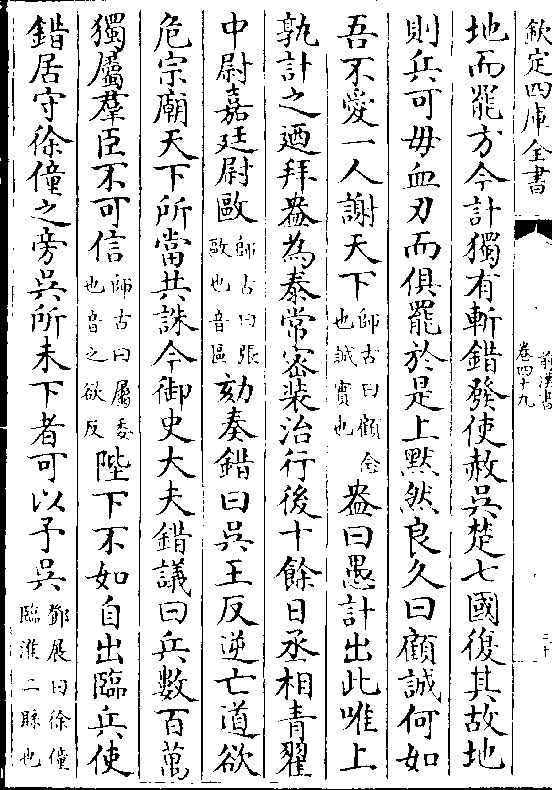 欽定四庫全書
前漢書
卷四十九
地而罷方今計獨有斬錯發使赦吳楚七國復其故地
則兵可毋血刃而俱罷於是上默然良久曰顧誠何如
吾不愛一人謝天下師古曰顧念也誠實也盎曰愚計出此唯上
孰計之迺拜盎為泰常密装治行後十餘日丞相青翟
中尉嘉廷尉歐師古曰張歐也音區劾奏錯曰吳王反逆亡道欲
危宗廟天下所當共誅今御史大夫錯議曰兵數百萬
獨屬羣臣不可信師古曰屬委也音之欲反陛下不如自出臨兵使
錯居守徐僮之旁吳所未下者可以予吳鄧展曰徐僮臨淮二縣也